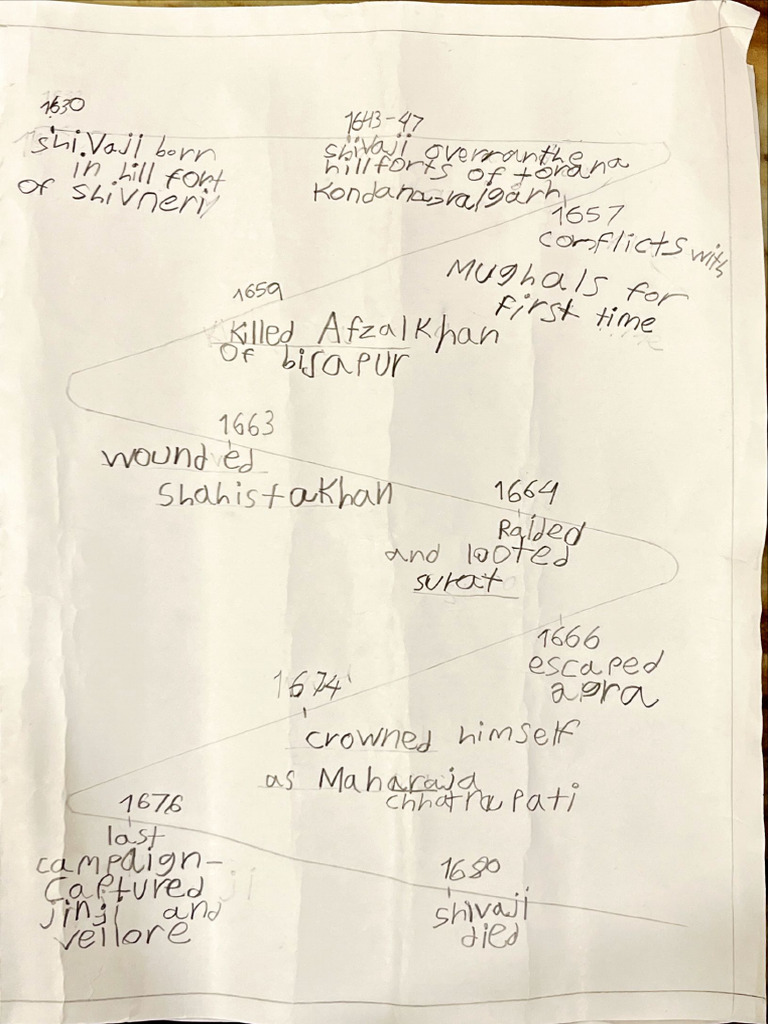 1630
shivaji born
in hill fort
of shivneri
1643-47
shivaji overranthe
hillforts of torana
Kondana
1657
conflicts with
Mughals for
first time
1659
killed Afzalkhan
of bijapur
1663
wounded
shahistakhan
1664
Raided
and looted
surat
1666
escaped
agra
1674
crowned himself
as Maharaja
chhatrapati
1676
last
campaign-
captured
jinji and
vellore
1680
shivaji
died